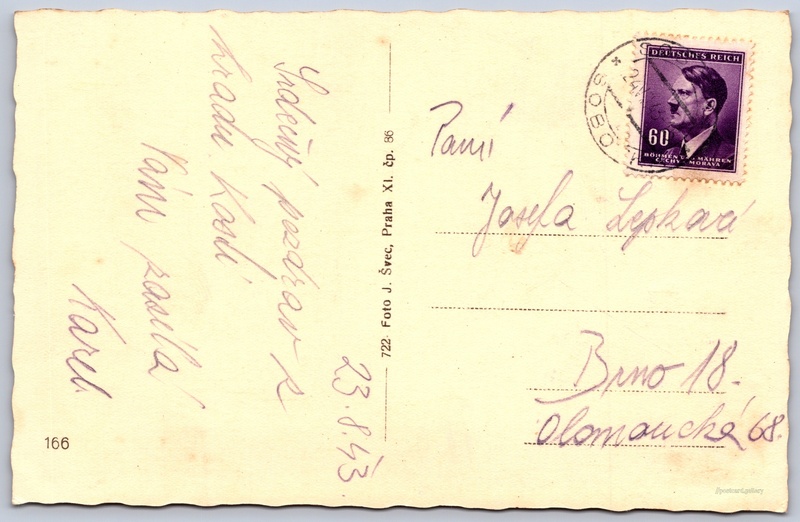 Srdečný pozdrav z
hradu Kosti
Vám posílá
Karel.
23.8.43
166
722 Foto J. Švec, Praha XI. čp. 86
DEUTSCHES REICH
60
BÖHMEN U. MÄHREN
ČECHY MORAVA
SOBO
Paní
Josefa Lepková
Brno 18.
Olomoucká 68.